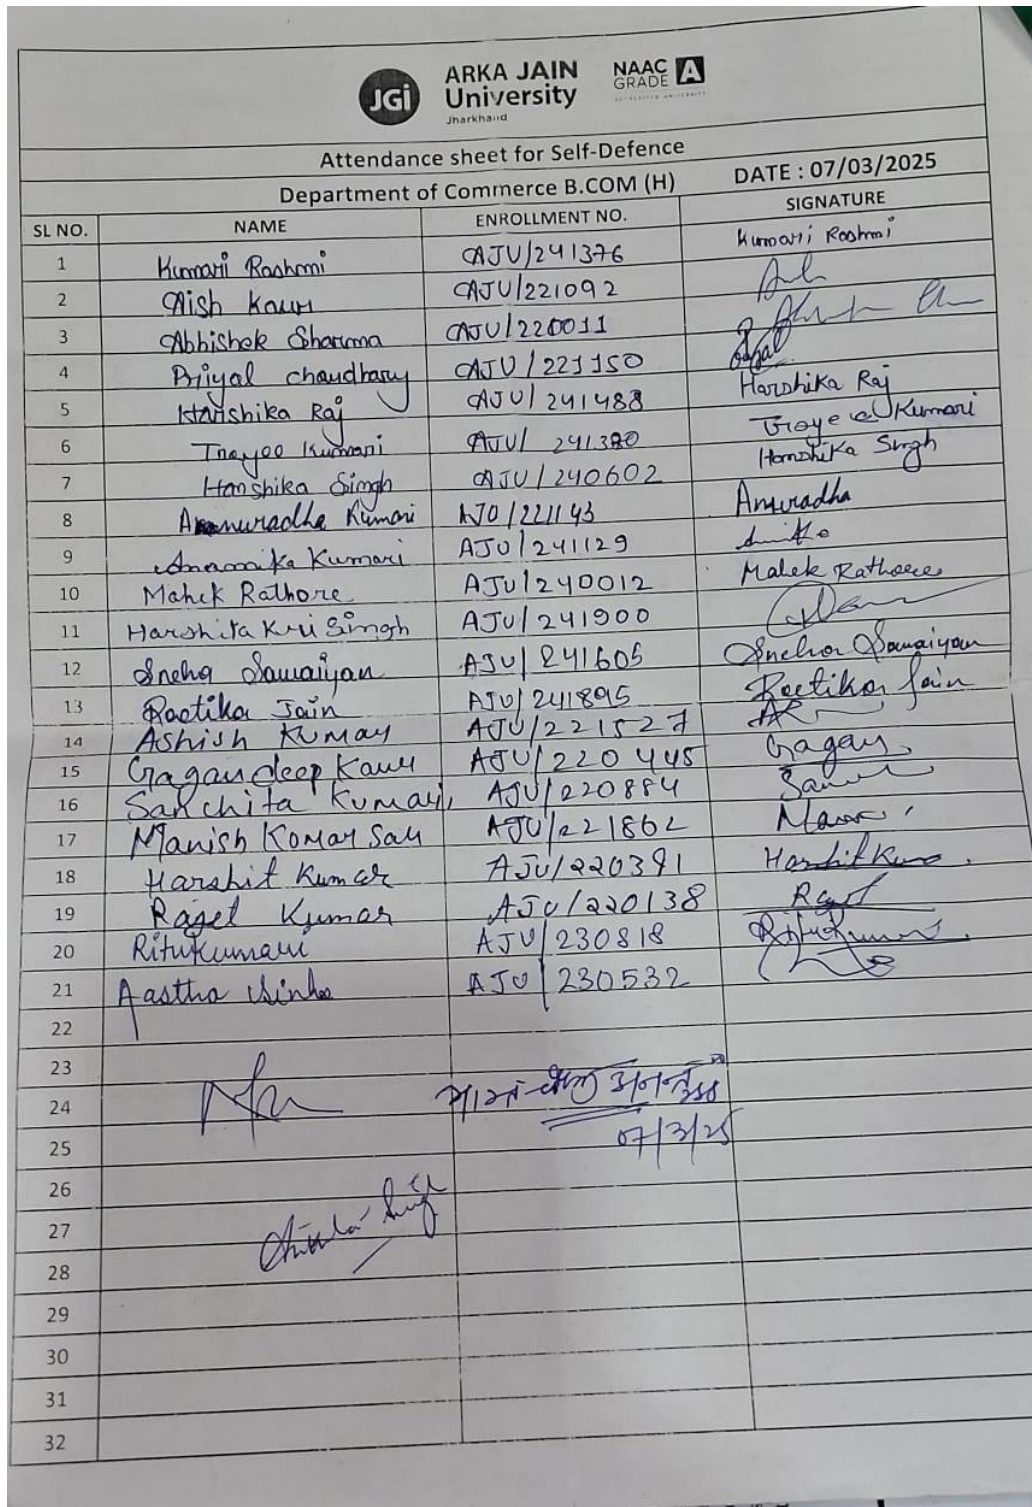 JGi ARKA JAIN University Jharkhand NAAC GRADE A
Attendance sheet for Self-Defence
Department of Commerce B.COM (H) DATE : 07/03/2025
SL NO. NAME ENROLLMENT NO. SIGNATURE
1 Kumari Rashmi AJU/241376 Kumari Rashmi
2 Aish Kaur AJU/221092
3 Abhishek Sharma AJU/220011
4 Priyal chaudhary AJU/221150
5 Harshika Raj AJU/241488 Harshika Raj
6 Trayee Kumari AJU/241380 Trayee Kumari
7 Hanshika Singh AJU/240602 Hanshika Singh
8 Anuradha Kumari AJU/221143 Anuradha
9 Anamika Kumari AJU/241129
10 Mahek Rathore AJU/240012 Mahek Rathore
11 Harshita Kri Singh AJU/241900
12 Sneha Sawaiyan AJU/241605 Sneha Sawaiyan
13 Raetika Jain AJU/241895 Reetika Jain
14 Ashish Kumar AJU/221527
15 Gagandeep Kaur AJU/220445 Gagan
16 Sanchita Kumari AJU/220884
17 Manish Komar Sau AJU/221862
18 Harshit Kumar AJU/220391 Harshit
19 Rajet Kumar AJU/220138
20 Ritu Kumari AJU/230818
21 Aastha Sinha AJU/230532
22
23
24
07/3/25
25
26
27
28
29
30
31
32